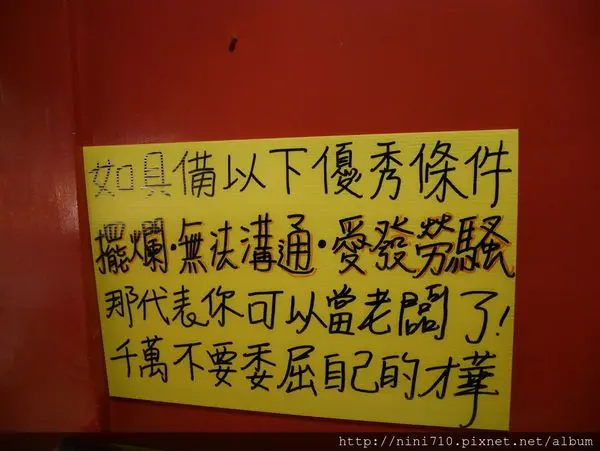 如具備以下優秀條件
擺爛·無法溝通·愛發勞騷
那代表你可以當老闆了!
千萬不要委屈自己的才華
http://nini710.pixnet.net/album